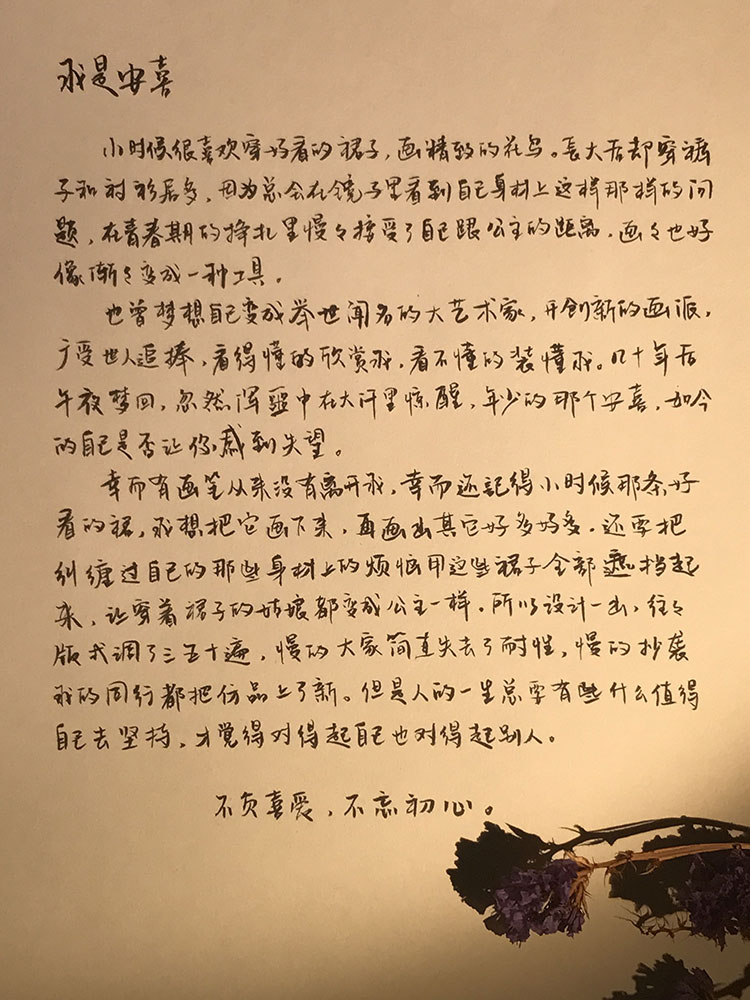 我是安喜
小时候很喜欢穿好看的裙子，画精致的花鸟。長大后却穿裤
子和衬衫居多，因为总会在镜子里看到自己身材上这样那样的问
题，在青春期的挣扎里慢々接受了自己跟公主的距离，画々也好
像渐々变成一种工具。
也曾梦想自己变成举世闻名的大艺术家，开创新的画派，
广受世人追捧，看得懂的欣赏我，看不懂的装懂我。几十年后
午夜梦回，忽然浑噩中在大汗里惊醒，年少的那个安喜，如今
的自己是否让你感到失望。
幸而有画笔从来没有离开我，幸而还記得小时候那条好
看的裙，我想把它画下来，再画出其它好多好多。还要把
纠缠过自己的那些身材上的烦恼用这些裙子全部遮挡起
来，让穿着裙子的姑娘都变成公主一样。所以设计一出，往々
版式调了三五十遍，慢的大家简直失去了耐性，慢的抄袭
我的同行都把仿品上了新。但是人的一生总要有些什么值得
自己去坚持，才覺得对得起自己也对得起别人。
不负喜爱，不忘初心。